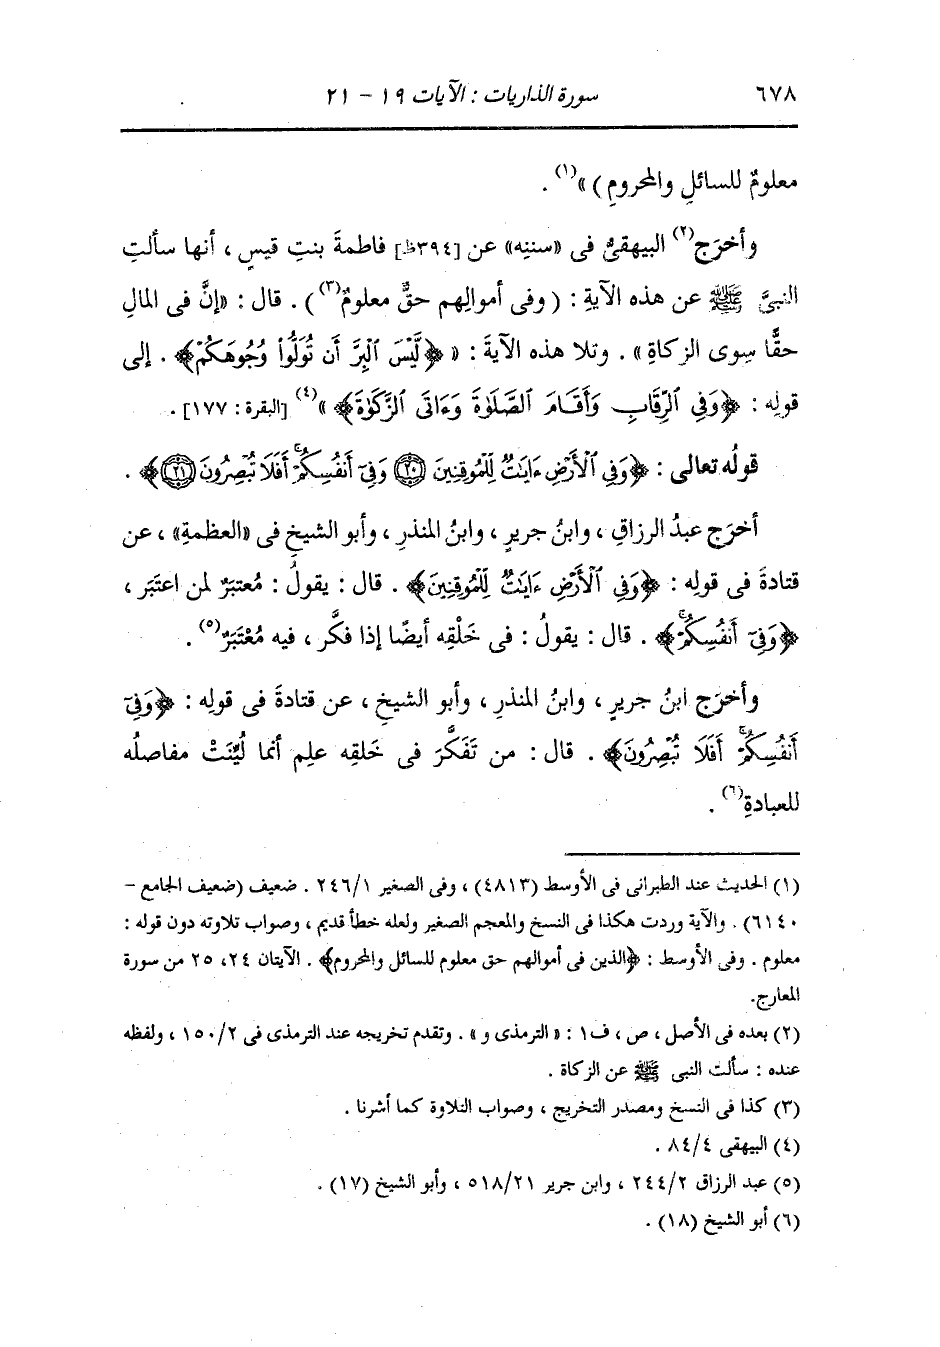 ٦٧٨ سورة الذاريات : الآيات ١٩ - ٢١
معلومٌ للسائلِ والمحرومِ)»(١) .
وأخرَج(٢) البيهقىُّ فى «سننِه» عن [٣٩٤ظ] فاطمةَ بنتِ قيسٍ ، أنها سألتِ
النبىَّ ﷺ عن هذه الآيةِ : (وفى أموالِهم حقٌّ معلومٌ(٣)) . قال : «إنَّ فى المالِ
حقًّا سِوى الزكاةِ» . وتلا هذه الآيةَ : « ﴿لَّيْسَ ٱلْبِرَّ أَن تُوَلُّوا۟ وُجُوهَكُمْ﴾ . إلى
قولِه : ﴿وَفِى ٱلرِّقَابِ وَأَقَامَ ٱلصَّلَوٰةَ وَءَاتَى ٱلزَّكَوٰةَ﴾ »(٤) [البقرة : ١٧٧] .
قولُه تعالى : ﴿وَفِى ٱلْأَرْضِ ءَايَـٰتٌ لِّلْمُوقِنِينَ ٢٠ وَفِىٓ أَنفُسِكُمْ ۚ أَفَلَا تُبْصِرُونَ ٢١﴾ .
أخرَج عبدُ الرزاقِ ، وابنُ جريرٍ ، وابنُ المنذرِ ، وأبو الشيخِ فى «العظمةِ» ، عن
قتادةَ فى قولِه : ﴿وَفِى ٱلْأَرْضِ ءَايَـٰتٌ لِّلْمُوقِنِينَ﴾ . قال : يقولُ : مُعتبَرٌ لمن اعتَبَر ،
﴿وَفِىٓ أَنفُسِكُمْ ۚ﴾ . قال : يقولُ : فى خَلْقِه أيضًا إذا فكَّر ، فيه مُعْتَبَرٌ(٥) .
وأخرَج ابنُ جريرٍ ، وابنُ المنذرِ ، وأبو الشيخِ ، عن قتادةَ فى قولِه : ﴿وَفِىٓ
أَنفُسِكُمْ ۚ أَفَلَا تُبْصِرُونَ﴾ . قال : من تَفَكَّرَ فى خَلقِه علِم أنما لُيِّنَتْ مفاصلُه
للعبادةِ(٦) .
(١) الحديث عند الطبرانى فى الأوسط (٤٨١٣) ، وفى الصغير ٢٤٦/١ . ضعيف (ضعيف الجامع -
٦١٤٠) . والآية وردت هكذا فى النسخ والمعجم الصغير ولعله خطأ قديم ، وصواب تلاوته دون قوله :
معلوم . وفى الأوسط : ﴿والذين فى أموالهم حق معلوم للسائل والمحروم﴾ . الآيتان ٢٤، ٢٥ من سورة
المعارج.
(٢) بعده فى الأصل ، ص ، ف١ : « الترمذى و » . وتقدم تخريجه عند الترمذى فى ١٥٠/٢ ، ولفظه
عنده : سألت النبى ﷺ عن الزكاة .
(٣) كذا فى النسخ ومصدر التخريج ، وصواب التلاوة كما أشرنا .
(٤) البيهقى ٨٤/٤ .
(٥) عبد الرزاق ٢٤٤/٢ ، وابن جرير ٥١٨/٢١ ، وأبو الشيخ (١٧) .
(٦) أبو الشيخ (١٨) .